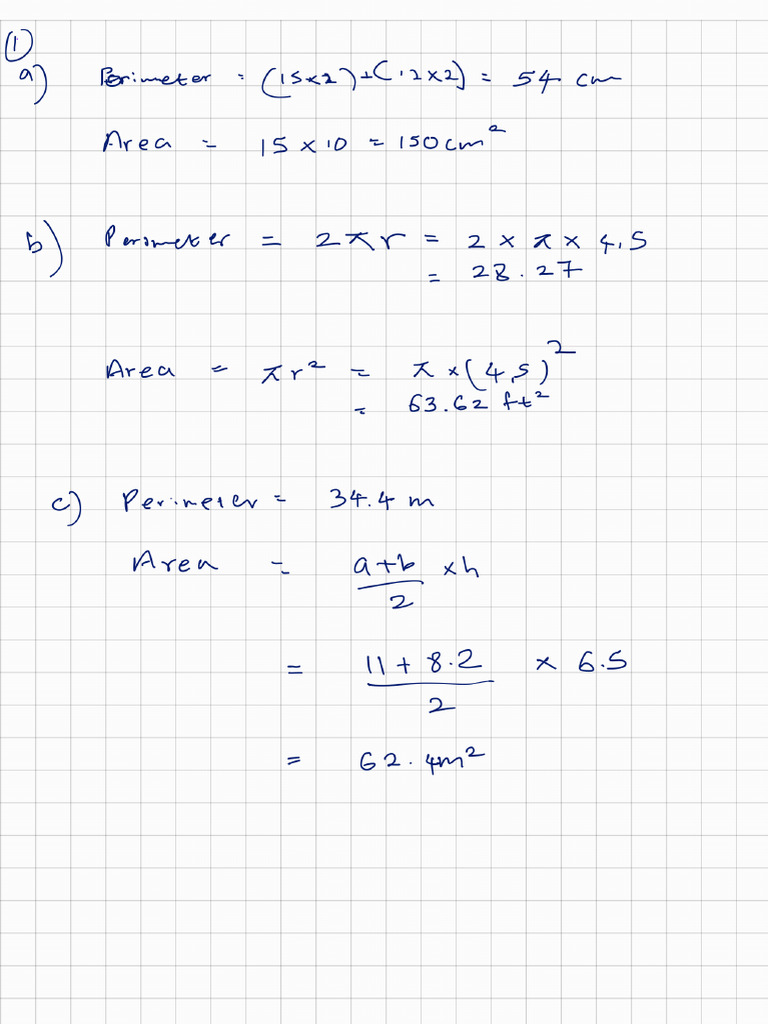 ①
a) Perimeter = (15×2)+(12×2) = 54 cm
Area = 15 × 10 = 150cm²
b) Perimeter = 2πr = 2 × π × 4.5
= 28.27
Area = πr² = π ×(4.5)²
= 63.62 ft²
c) Perimeter = 34.4 m
Area = a+b/2 ×h
= 11 + 8.2/2 × 6.5
= 62.4m²